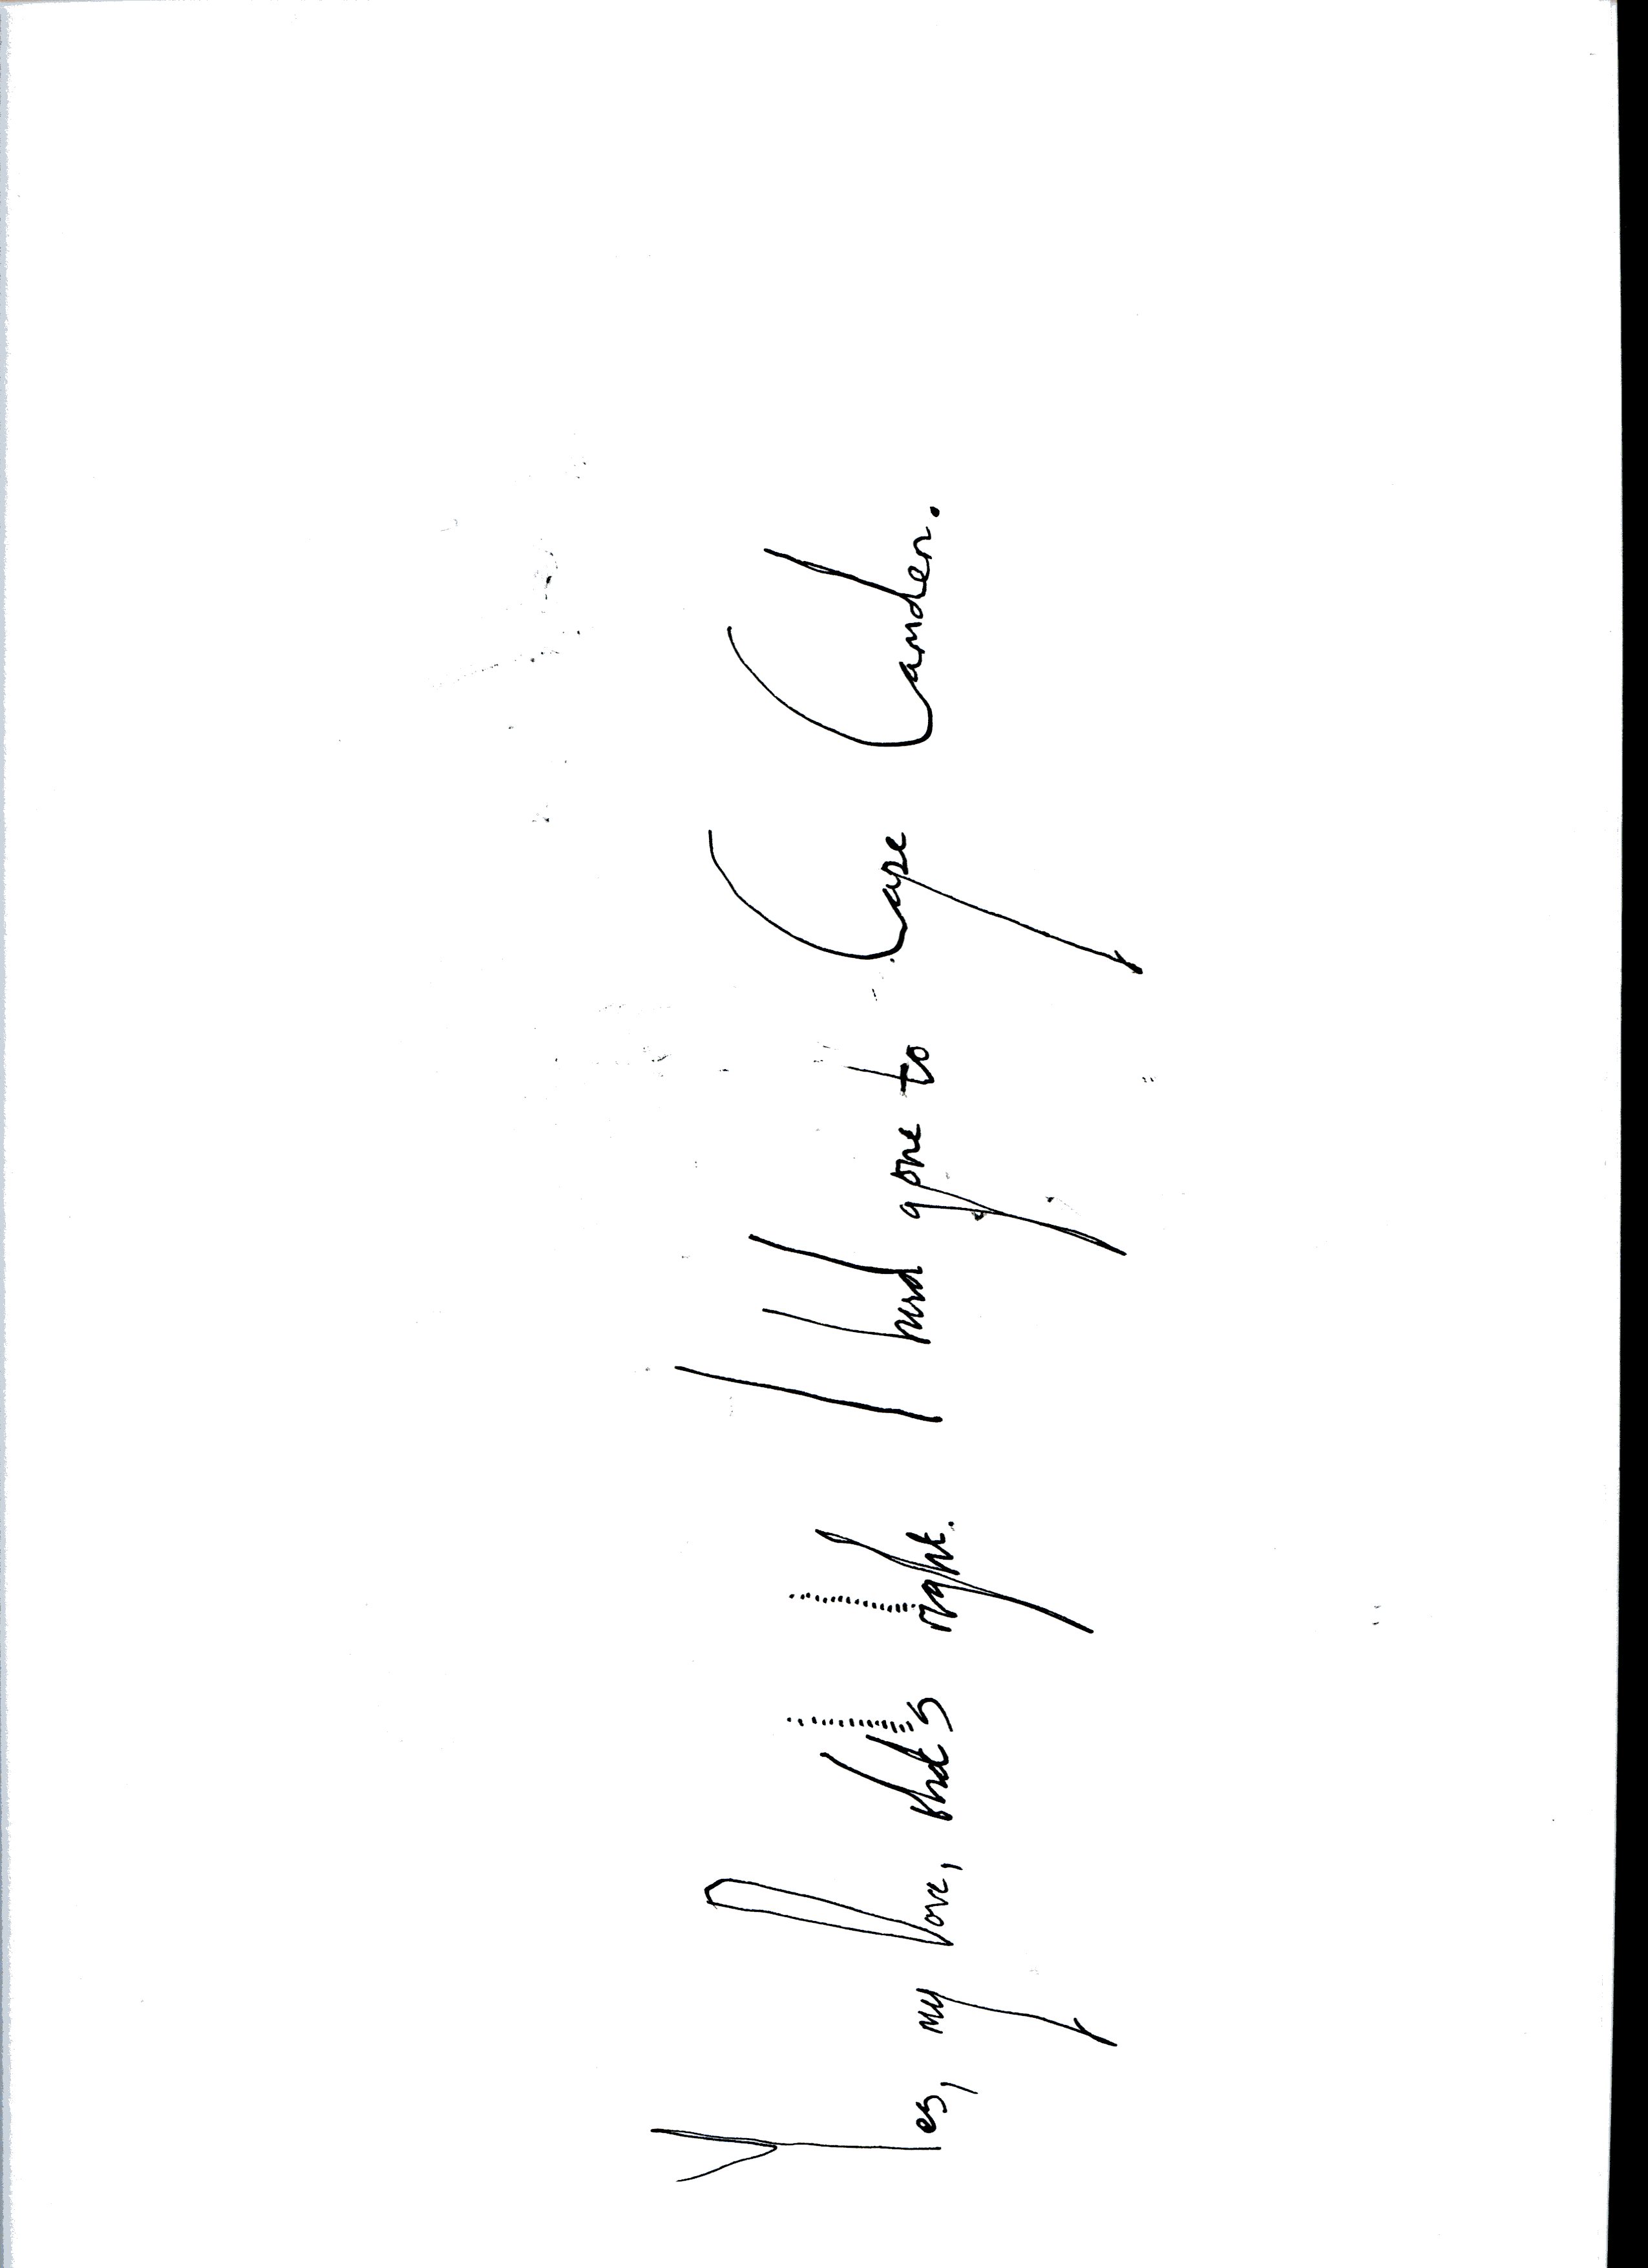 Yes, my love, that's right. I had gone to Cape Camden.